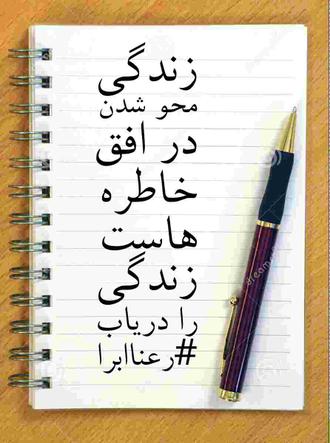 زندگی
محو شدن
در افق
خاطره
هاست
زندگی
را دریاب
#رعناابرا